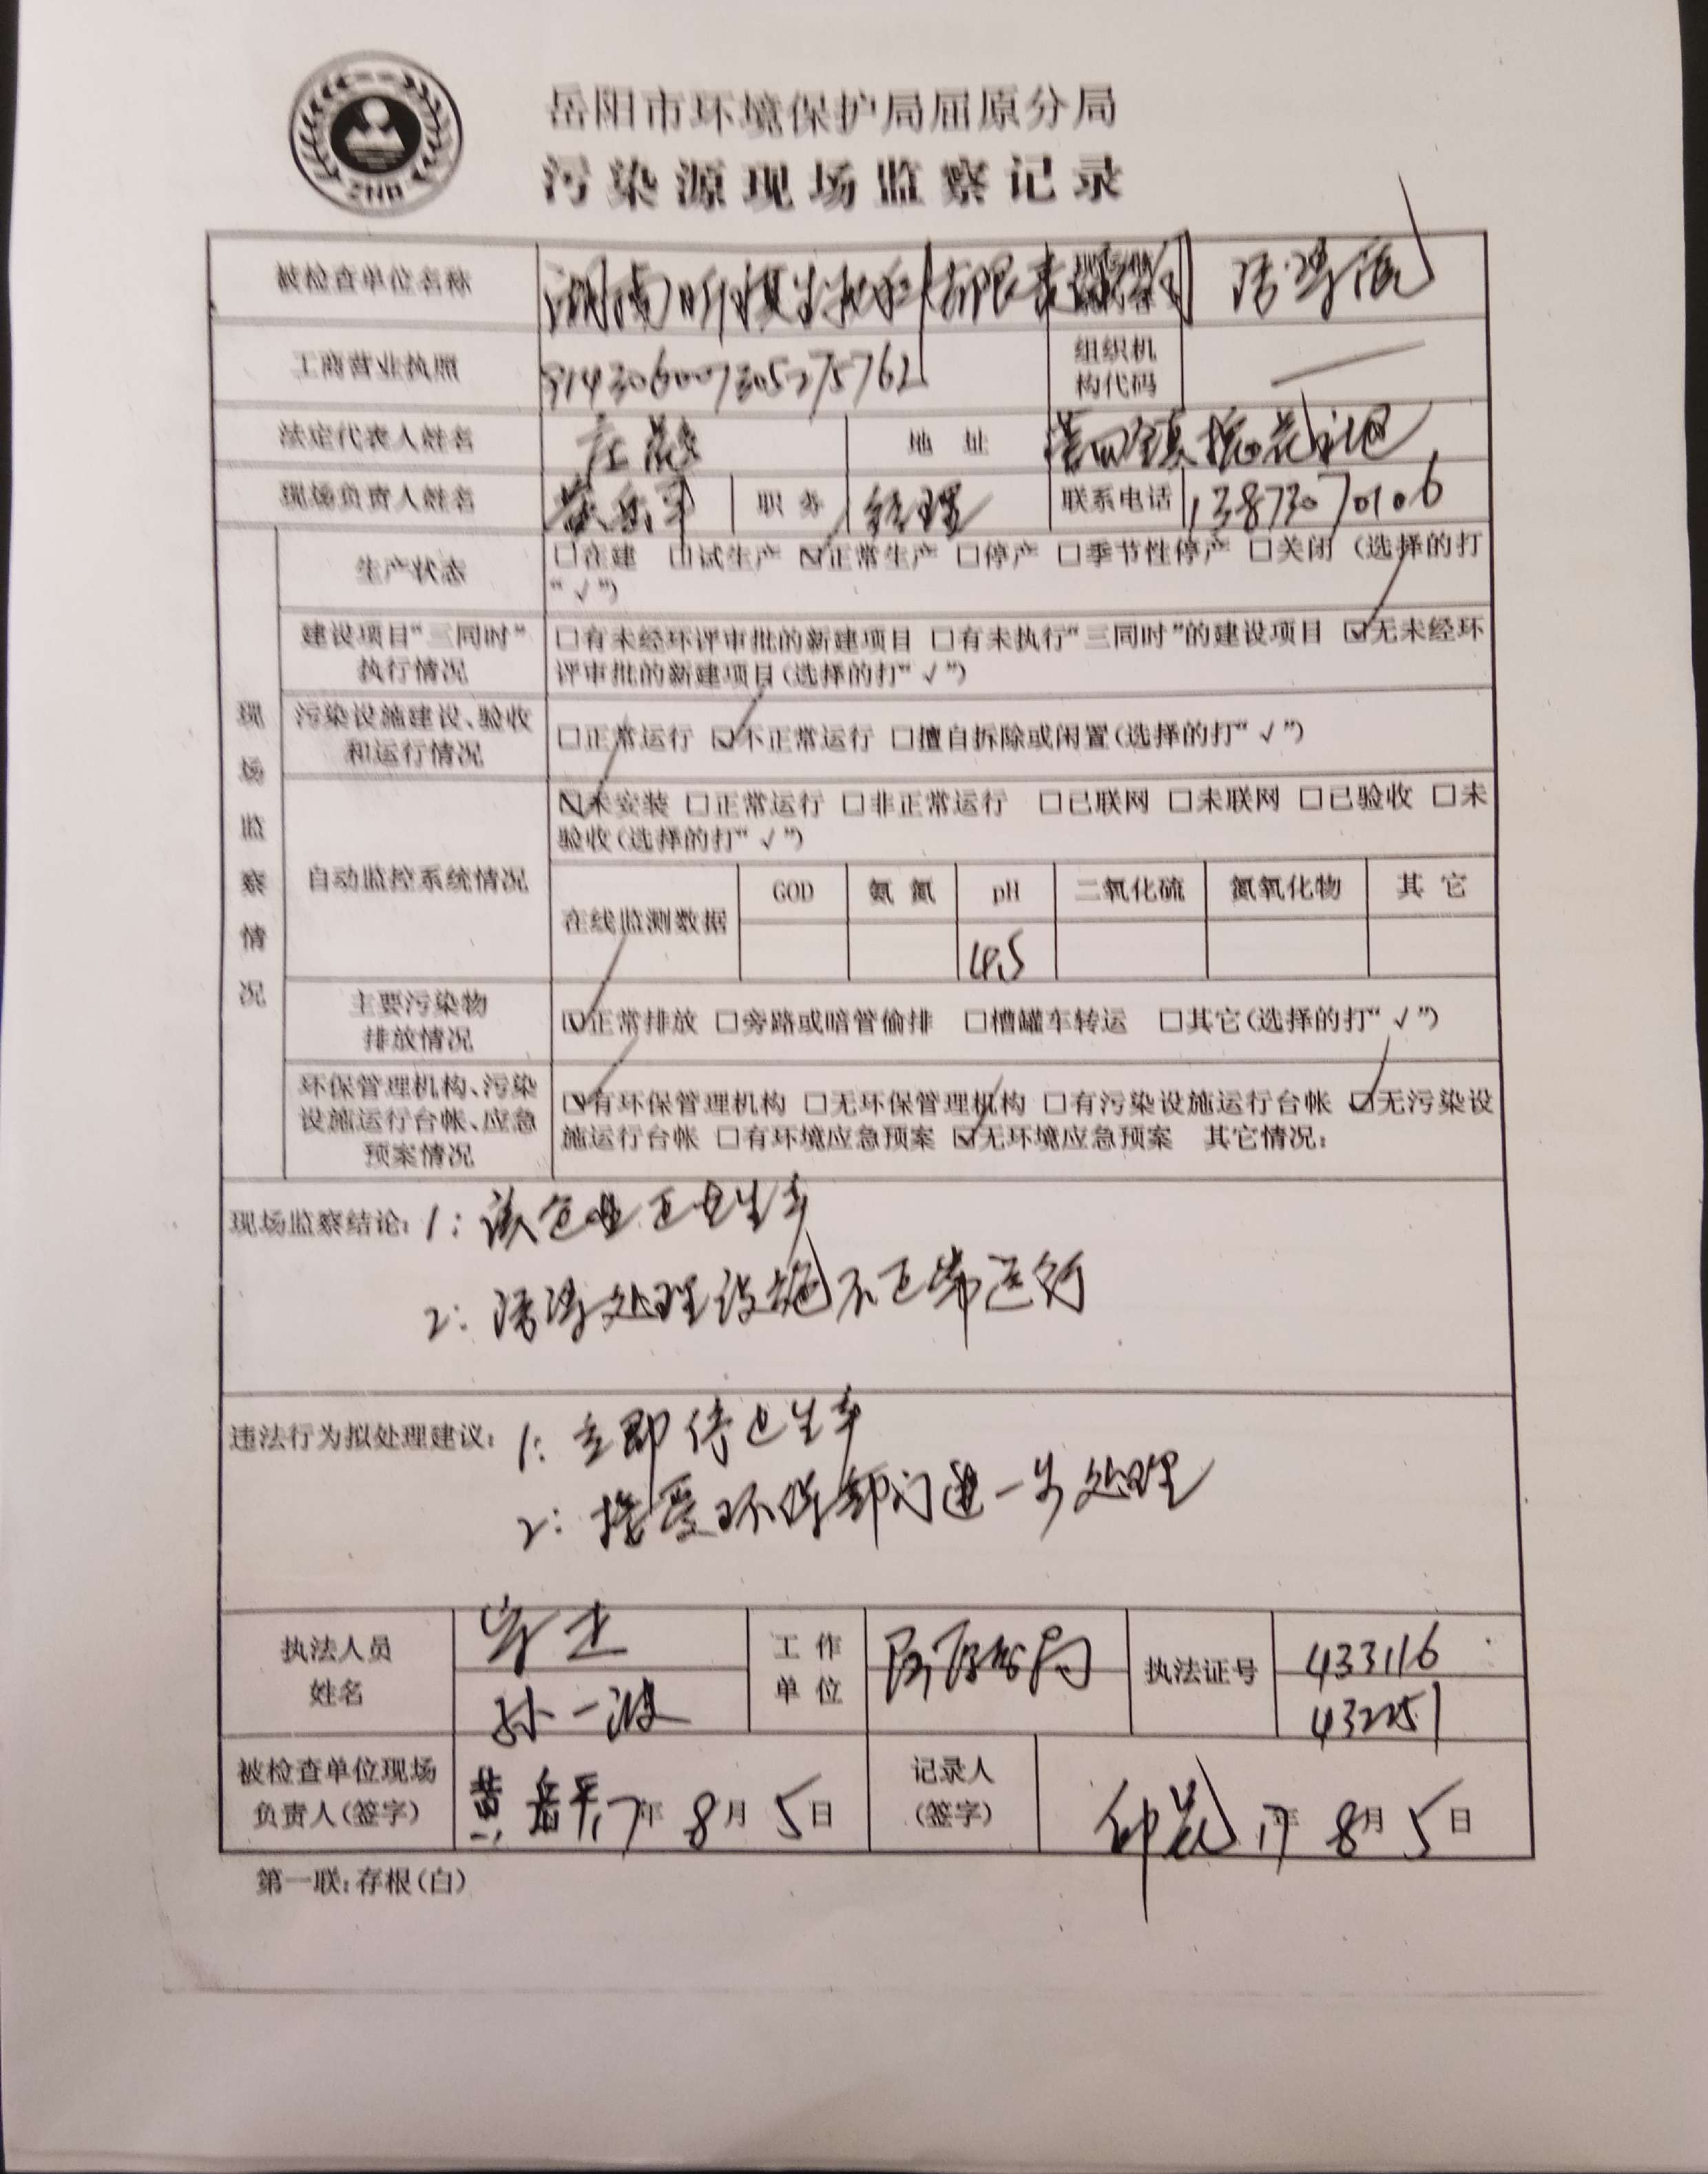 岳阳市环境保护局屈原分局
污染源现场监察记录
被检查单位名称 湖南 生物 有限责任公司
工商营业执照 组织机构代码
法定代表人姓名 庄 地址 营田镇
现场负责人姓名 黄岳平 职务 经理 联系电话 13873070106
现场监察情况
生产状态 □在建 □试生产 ☑正常生产 □停产 □季节性停产 □关闭 (选择的打
“√”)
建设项目“三同时”
执行情况
□有未经环评审批的新建项目 □有未执行“三同时”的建设项目 ☑无未经环
评审批的新建项目(选择的打“√”)
污染设施建设、验收
和运行情况
□正常运行 ☑不正常运行 □擅自拆除或闲置(选择的打“√”)
自动监控系统情况
☑未安装 □正常运行 □非正常运行 □已联网 □未联网 □已验收 □未
验收(选择的打“√”)
在线监测数据 GOD 氨氮 pH 二氧化硫 氮氧化物 其它
4.5
主要污染物
排放情况
☑正常排放 □旁路或暗管偷排 □槽罐车转运 □其它(选择的打“√”)
环保管理机构、污染
设施运行台帐、应急
预案情况
☑有环保管理机构 □无环保管理机构 □有污染设施运行台帐 ☑无污染设
施运行台帐 □有环境应急预案 ☑无环境应急预案 其它情况:
现场监察结论: 1: 该企业正在生产
2: 处理设施不正常运行
违法行为拟处理建议: 1: 立即停止生产
2: 接受环保部门进一步处理
执法人员
姓名
孙一波
工作
单位
屈原分局
执法证号
433116
432251
被检查单位现场
负责人(签字)
黄岳平 17年 8月 5日
记录人
(签字)
17年 8月 5日
第一联:存根(白)